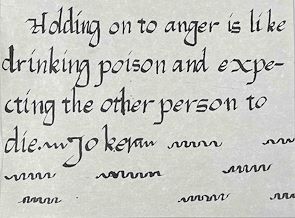 Holding on to anger is like
drinking poison and expe-
cting the other person to
die. Joker